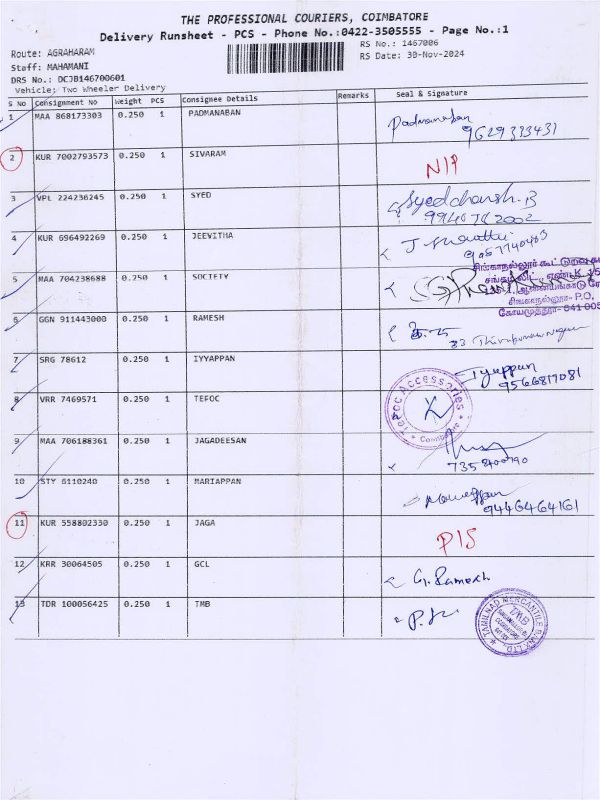 THE PROFESSIONAL COURIERS, COIMBATORE
Delivery Runsheet - PCS - Phone No.:0422-3505555 - Page No.:1
Route: AGRAHARAM
RS No.: 1467006
Staff: MAHAMANI
RS Date: 30-Nov-2024
DRS No.: DCJB146700601
Vehicle: Two Wheeler Delivery
S No Consignment No Weight PCS Consignee Details Remarks Seal & Signature
1 MAA 868173303 0.250 1 PADMANABAN Padmanaban
9629333431
2 KUR 7002793573 0.250 1 SIVARAM N/P
3 VPL 224236245 0.250 1 SYED
4 KUR 696492269 0.250 1 JEEVITHA
5 MAA 704238688 0.250 1 SOCIETY
சிங்காநல்லூர் கூட்டுறவு
சிங்காநல்லூர்- P.O.
கோயமுத்தூர்- 641 005
6 GGN 911443000 0.250 1 RAMESH
7 SRG 78612 0.250 1 IYYAPPAN Iyappan
9566817081
8 VRR 7469571 0.250 1 TEFOC Tefoc Accessories
Coimbatore
9 MAA 706188361 0.250 1 JAGADEESAN
10 STY 6110240 0.250 1 MARIAPPAN
9446464161
11 KUR 558802330 0.250 1 JAGA P/S
12 KRR 30064505 0.250 1 GCL G. Ramesh
13 TDR 100056425 0.250 1 TMB
TAMILNAD MERCANTILE BANK LTD.
TMB